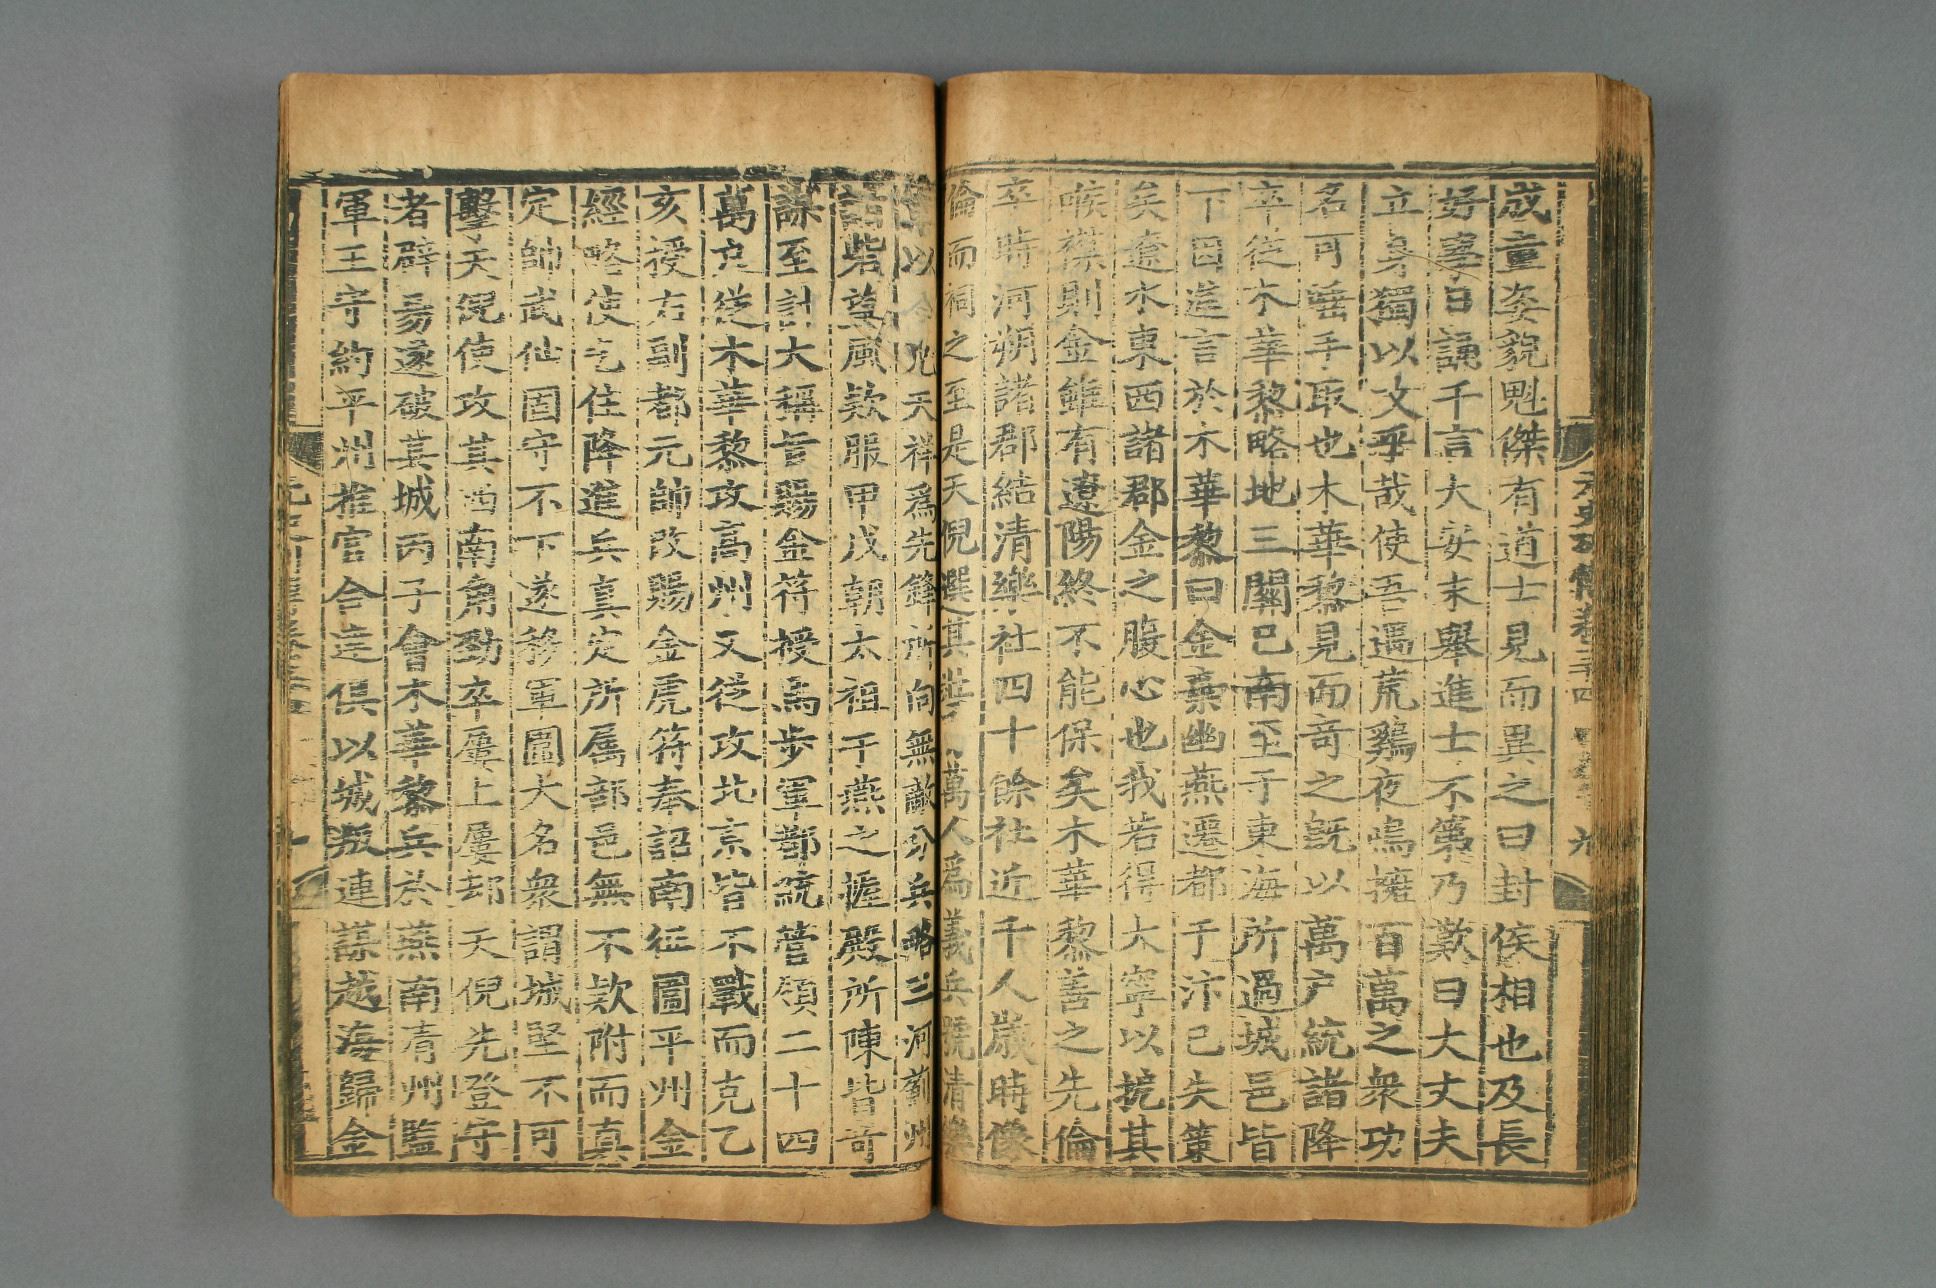 成童姿貌魁傑有道士見而異之曰封侯相也及長
好學日誦千言大安末舉進士不第乃歎曰大丈夫
立身獨以文乎哉使吾遇荒鷄夜鳴擁百萬之衆功
名可唾手取也木華黎見而奇之既以萬户統諸降
卒從木華黎略地三關已南至于東海所過城邑皆
下因進言於木華黎曰金棄幽燕遷都于汴已失策
矣遼水東西諸郡金之腹心也我若得大寧以扼其
喉襟則金雖有遼陽終不能保矣木華黎善之先倫
卒時河朔諸郡結清樂社四十餘社近千人歲時像
倫而祠之至是天倪選其壯勇萬人爲義兵號清樂
軍以從兄天祥爲先鋒所向無敵分兵略三河薊州
諸砦望風欵服甲戌朝太祖于燕之幄殿所陳皆奇
謀至計大稱旨賜金符授馬步軍都統管領二十四
萬户從木華黎攻高州又從攻北京皆不戰而克乙
亥授右副都元帥改賜金虎符奉詔南征圖平州金
經略使乞住降進兵真定所属部邑無不欵附而真
定帥武仙固守不下遂移軍圍大名衆謂城堅不可
擊天倪使攻其西南角勁卒屢上屢却天倪先登守
者辟易遂破其城丙子會木華黎兵於燕南清州監
軍王守約平州推官合達俱以城叛連謀越海歸金